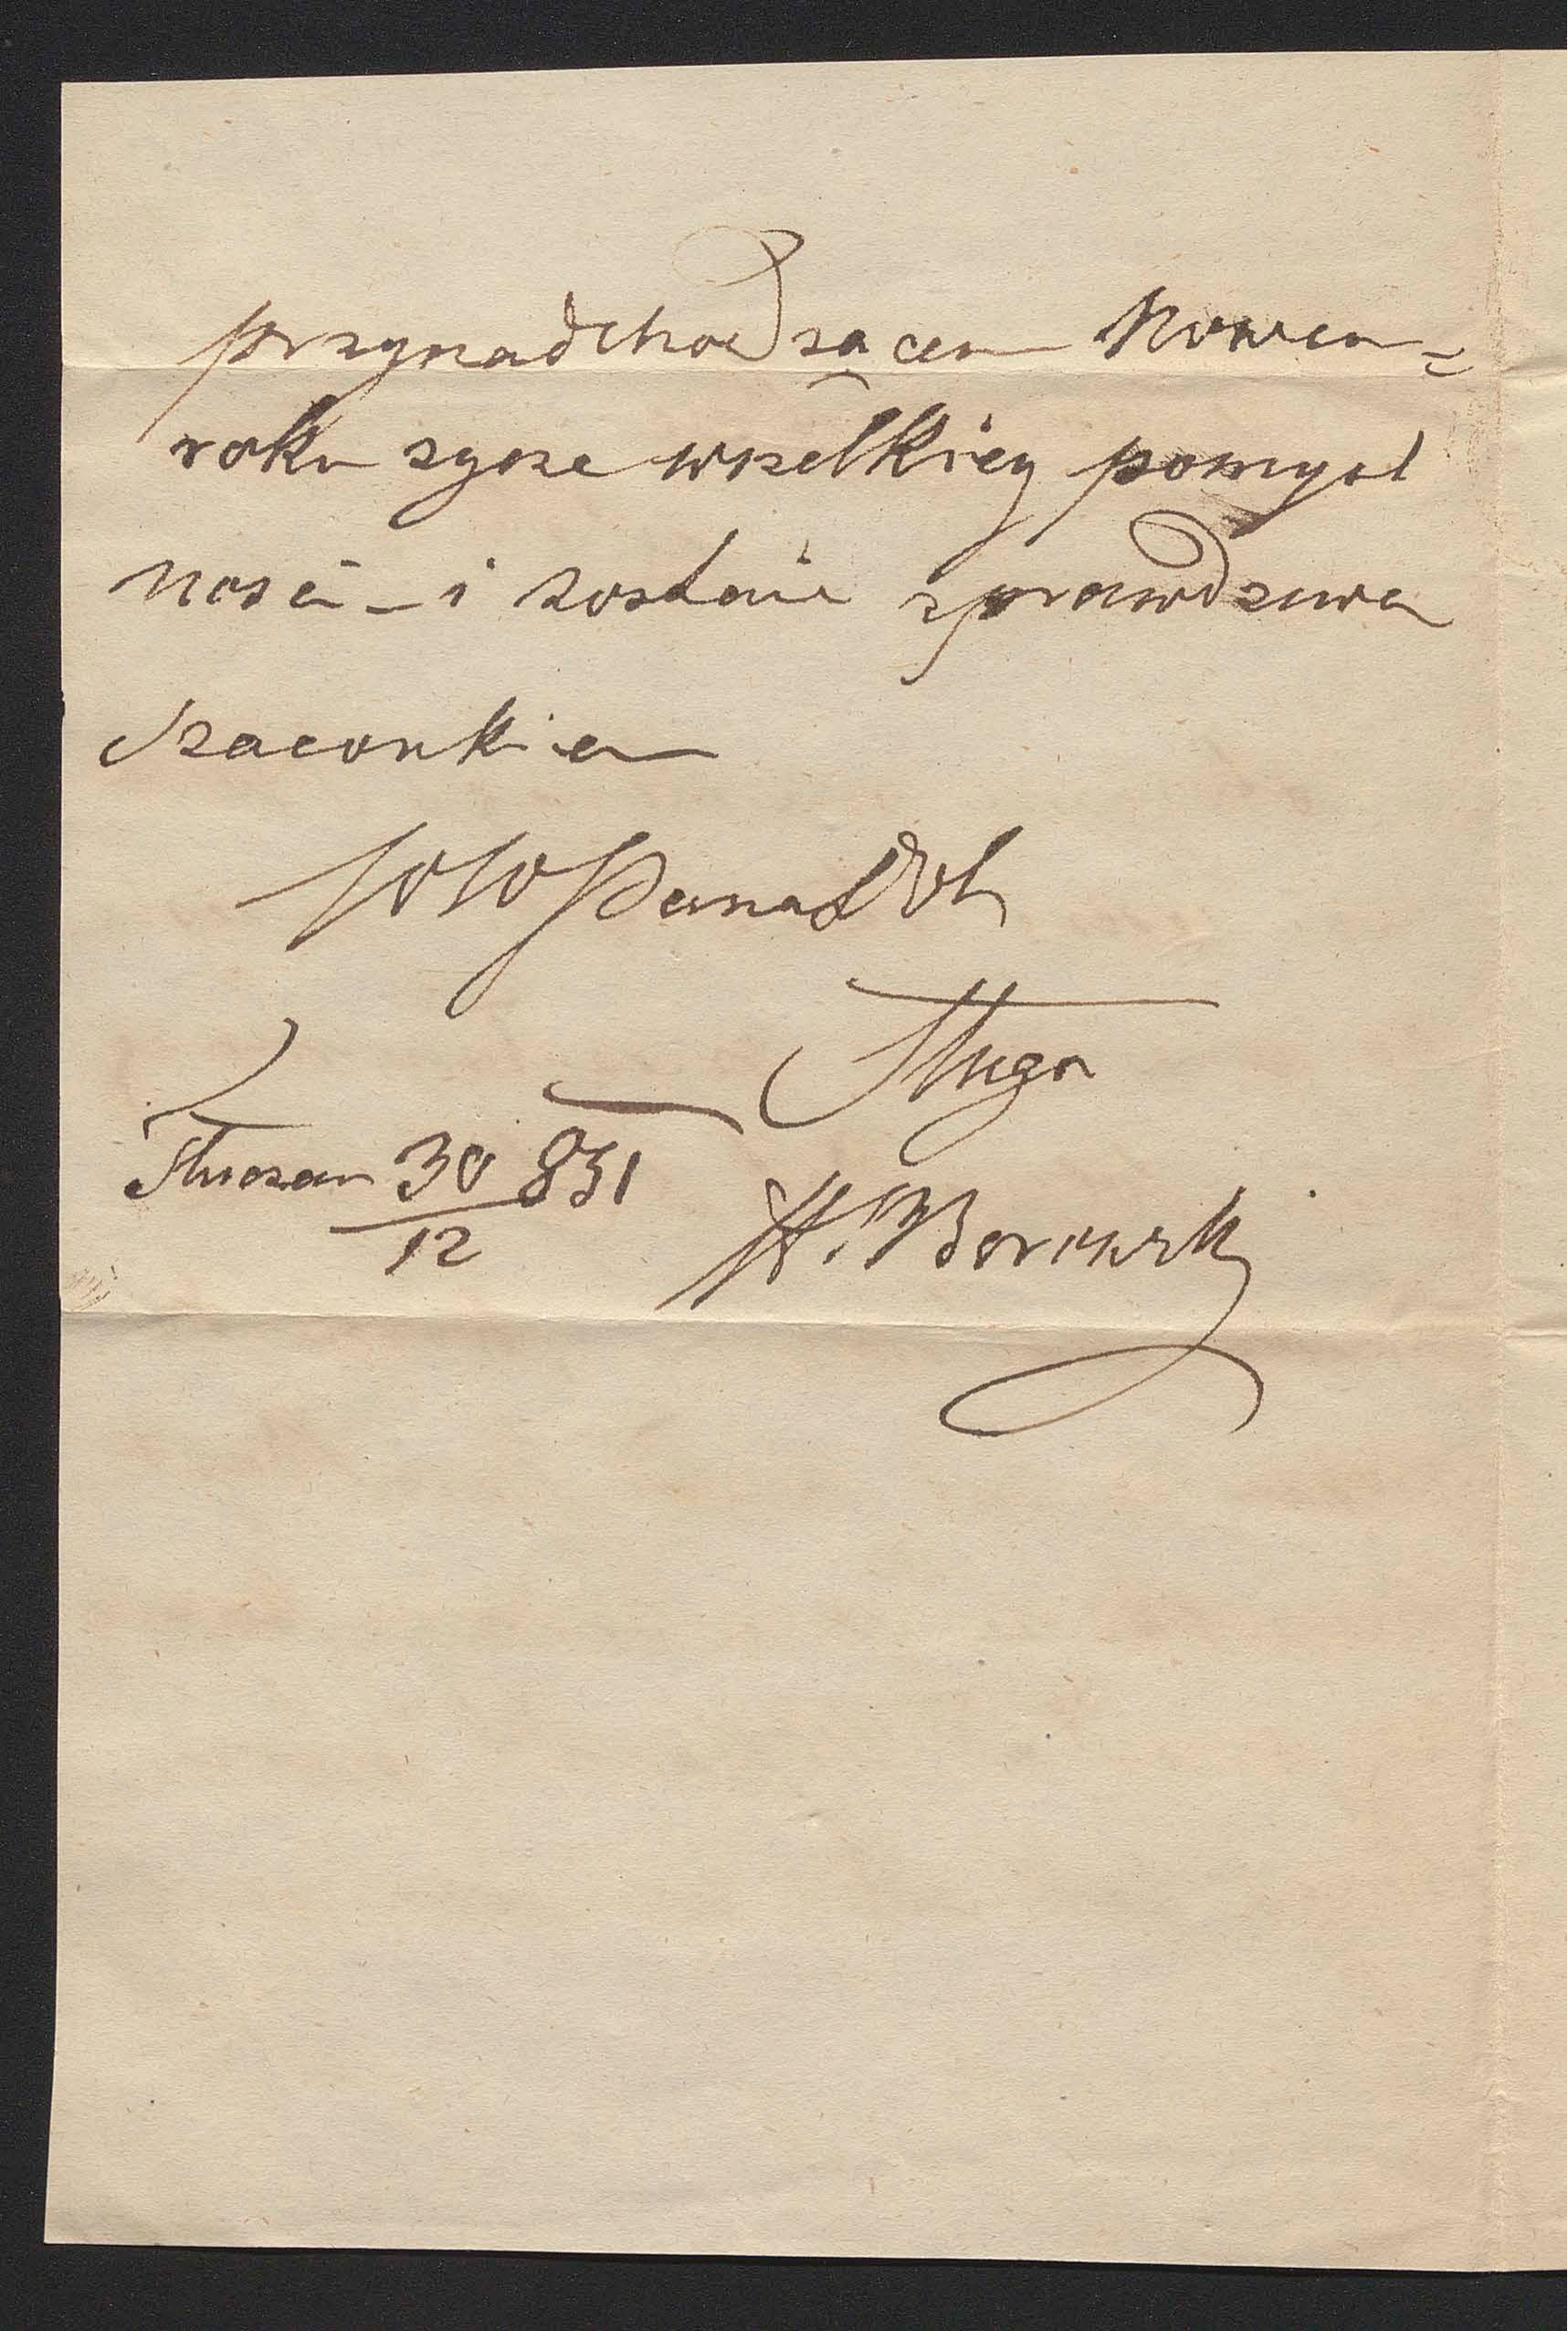 przynadchodzącem Nowem=
roku zycze wszelkiey pomysl
nosci – i zostaie z prawdziwem
Szacunkiem
WWPana Dob
Sługa
30/12 831
H. Borowski